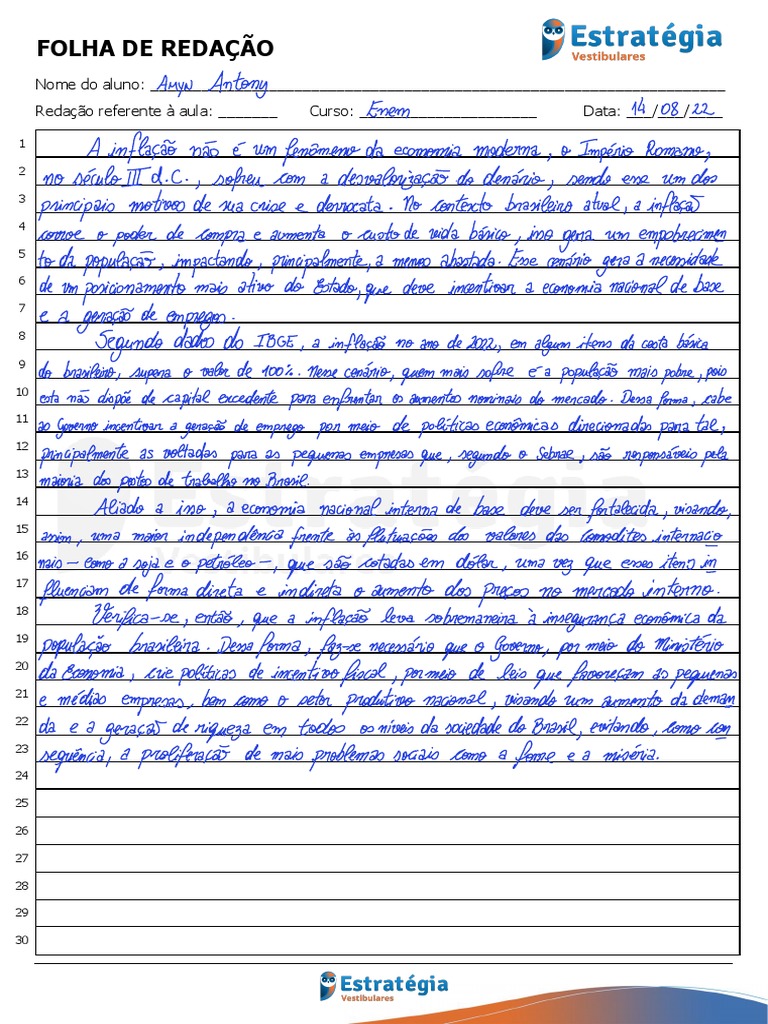 FOLHA DE REDAÇÃO
Estratégia
Vestibulares
Nome do aluno: Amyn Antony
Redação referente à aula: _______ Curso: Enem Data: 14/08/22
1 A inflação não é um fenômeno da economia moderna, o Império Romano,
2 no século III d.C., sofreu com a desvalorização do denário, sendo esse um dos
3 principais motivos de sua crise e derrocata. No contexto brasileiro atual, a inflação
4 corroe o poder de compra e aumenta o custo de vida básico, isso gera um empobrecimen
5 to da população, impactando, principalmente, a menos abastada. Esse cenário gera a necessidade
6 de um posicionamento mais ativo do Estado, que deve incentivar a economia nacional de base
7 e a geração de empregos.
8 Segundo dados do IBGE, a inflação no ano de 2022, em algum itens da cesta básica
9 do brasileiro, supera o valor de 100%. Nesse cenário, quem mais sofre é a população mais pobre, pois
10 esta não dispõe de capital excedente para enfrentar os aumentos nominais do mercado. Dessa forma, cabe
11 ao Governo incentivar a geração de emprego por meio de políticas econômicas direcionadas para tal,
12 principalmente as voltadas para as pequenas empresas que, segundo o Sebrae, são responsáveis pela
13 maioria dos postos de trabalho no Brasil.
14 Aliado a isso, a economia nacional interna de base deve ser fortalecida, visando,
15 assim, uma maior independência frente as flutuações dos valores das comodites internacio
16 nais – como a soja e o petróleo –, que são cotadas em dólar, uma vez que esses itens in
17 fluenciam de forma direta e indireta o aumento dos preços no mercado interno.
18 Verifica-se, então, que a inflação leva sobremaneira à insegurança econômica da
19 população brasileira. Dessa forma, faz-se necessário que o Governo, por meio do Ministério
20 da Economia, crie políticas de incentivo fiscal, por meio de leis que favoreçam as pequenas
21 e médias empresas, bem como o setor produtivo nacional, visando um aumento da deman
22 da e a geração de riqueza em todos os níveis da sociedade do Brasil, evitando, como con
23 sequência, a proliferação de mais problemas sociais como a fome e a miséria.
24
25
26
27
28
29
30
Estratégia
Vestibulares